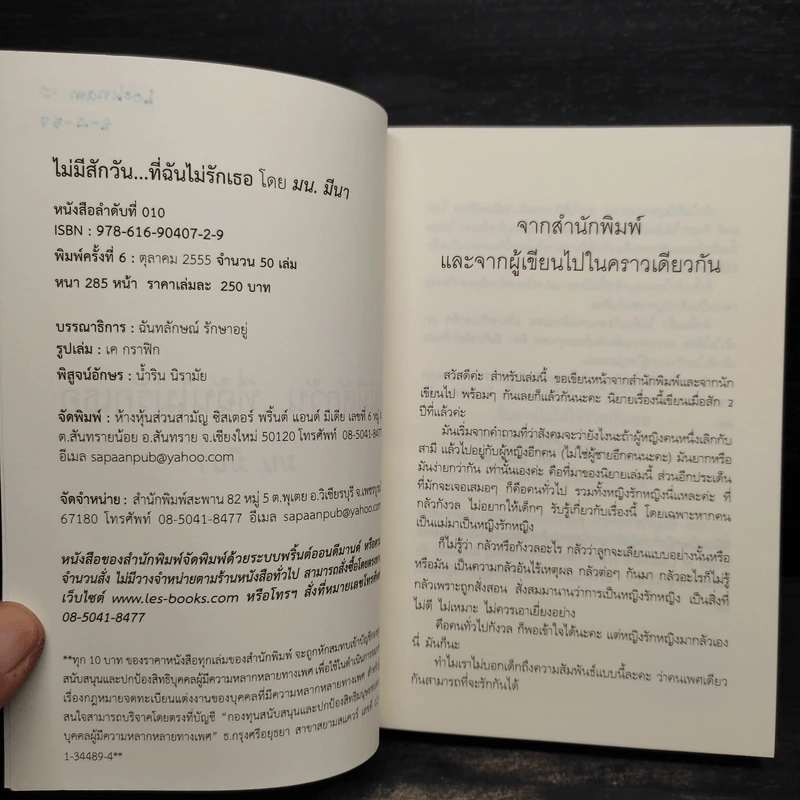 ไม่มีสักวัน...ที่ฉันไม่รักเธอ โดย มน. มีนา
หนังสือลำดับที่ 010
ISBN : 978-616-90407-2-9
พิมพ์ครั้งที่ 6 : ตุลาคม 2555 จำนวน 50 เล่ม
หนา 285 หน้า ราคาเล่มละ 250 บาท
บรรณาธิการ : ฉันทลักษณ์ รักษาอยู่
รูปเล่ม : เค กราฟิก
พิสูจน์อักษร : น้ำริน นิรามัย
จัดพิมพ์ : ห้างหุ้นส่วนสามัญ ซิสเตอร์ พริ้นต์ แอนด์ มีเดีย เลขที่ 6 หมู่
ต.สันทรายน้อย อ.สันทราย จ.เชียงใหม่ 50120 โทรศัพท์ 08-5041-8477
อีเมล sapaanpub@yahoo.com
จัดจำหน่าย : สำนักพิมพ์สะพาน 82 หมู่ 5 ต.พุเตย อ.วิเชียรบุรี จ.เพชรบูรณ์
67180 โทรศัพท์ 08-5041-8477 อีเมล sapaanpub@yahoo.com
หนังสือของสำนักพิมพ์จัดพิมพ์ด้วยระบบพริ้นต์ออนดีมานด์ หรือ
จำนวนสั่ง ไม่มีวางจำหน่ายตามร้านหนังสือทั่วไป สามารถสั่งซื้อโดยตรง
เว็บไซต์ www.les-books.com หรือโทรฯ สั่งที่หมายเลขโทรศัพท์
08-5041-8477
**ทุก 10 บาท ของราคาหนังสือทุกเล่มของสำนักพิมพ์ จะถูกหักสมทบเข้าบัญชี
สนับสนุนและปกป้องสิทธิบุคคลผู้มีความหลากหลายทางเพศ เพื่อใช้ในดำเนินการ
เรื่องกฎหมายจดทะเบียนแต่งงานของบุคคลที่มีความหลากหลายทางเพศ
สนใจสามารถบริจาคโดยตรงที่บัญชี "กองทุนสนับสนุนและปกป้องสิทธิมนุษยชน
บุคคลผู้มีความหลากหลายทางเพศ" ธ.กรุงศรีอยุธยา สาขาสยามสแควร์ เลขที่
1-34489-4**
จากสำนักพิมพ์
และจากผู้เขียนไปในคราวเดียวกัน
สวัสดีค่ะ สำหรับเล่มนี้ ขอเขียนหน้าจากสำนักพิมพ์และจากนัก
เขียนไป พร้อมๆ กันเลยก็แล้วกันนะคะ นิยายเรื่องนี้เขียนเมื่อสัก 2
ปีที่แล้วค่ะ
มันเริ่มจากคำถามที่ว่าสังคมจะว่ายังไงนะถ้าผู้หญิงคนหนึ่งเลิกกับ
สามี แล้วไปอยู่กับผู้หญิงอีกคน (ไม่ใช่ผู้ชายอีกคนนะคะ) มันยากหรือ
มันง่ายกว่ากัน เท่านั้นเองค่ะ คือที่มาของนิยายเล่มนี้ ส่วนอีกประเด็น
ที่มักจะเจอเสมอๆ ก็คือคนทั่วไป รวมทั้งหญิงรักหญิงนี่แหละค่ะ ที่
กลัวกังวล ไม่อยากให้เด็กๆ รับรู้เกี่ยวกับเรื่องนี้ โดยเฉพาะหากคน
เป็นแม่มาเป็นหญิงรักหญิง
ก็ไม่รู้ว่า กลัวหรือกังวลอะไร กลัวว่าลูกจะเลียนแบบอย่างนั้นหรือ
หรือมัน เป็นความกลัวอันไร้เหตุผล กลัวต่อๆ กันมา กลัวอะไรก็ไม่รู้
กลัวเพราะถูกสั่งสอน สั่งสมมานานว่าการเป็นหญิงรักหญิง เป็นสิ่งที่
ไม่ดี ไม่เหมาะ ไม่ควรเอาเยี่ยงอย่าง
คือคนทั่วไปกังวล ก็พอเข้าใจได้นะคะ แต่หญิงรักหญิงมากลัวเอง
นี่ มันก็นะ
ทำไมเราไม่บอกเด็กถึงความสัมพันธ์แบบนี้ละคะ ว่าคนเพศเดียว
กันสามารถที่จะรักกันได้